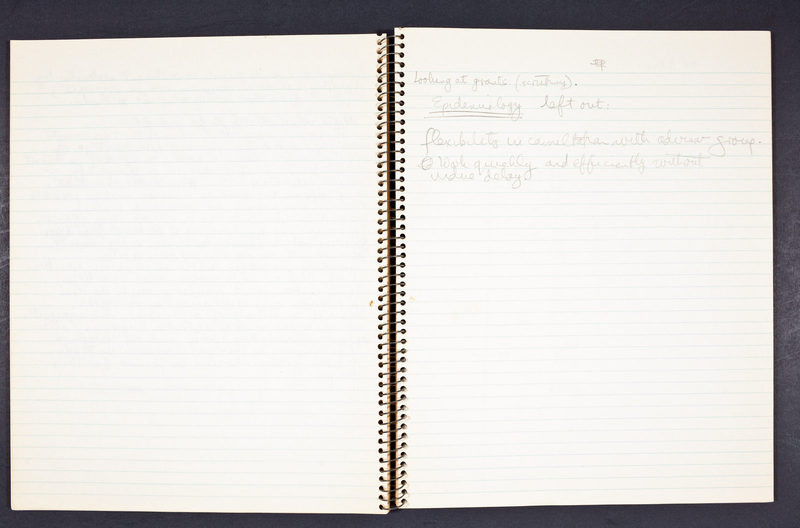 Looking at grants. (scrutiny).
Epidemiology left out:
flexibility in consultation with advisor group.
Work quickly and efficiently without
undue delay.